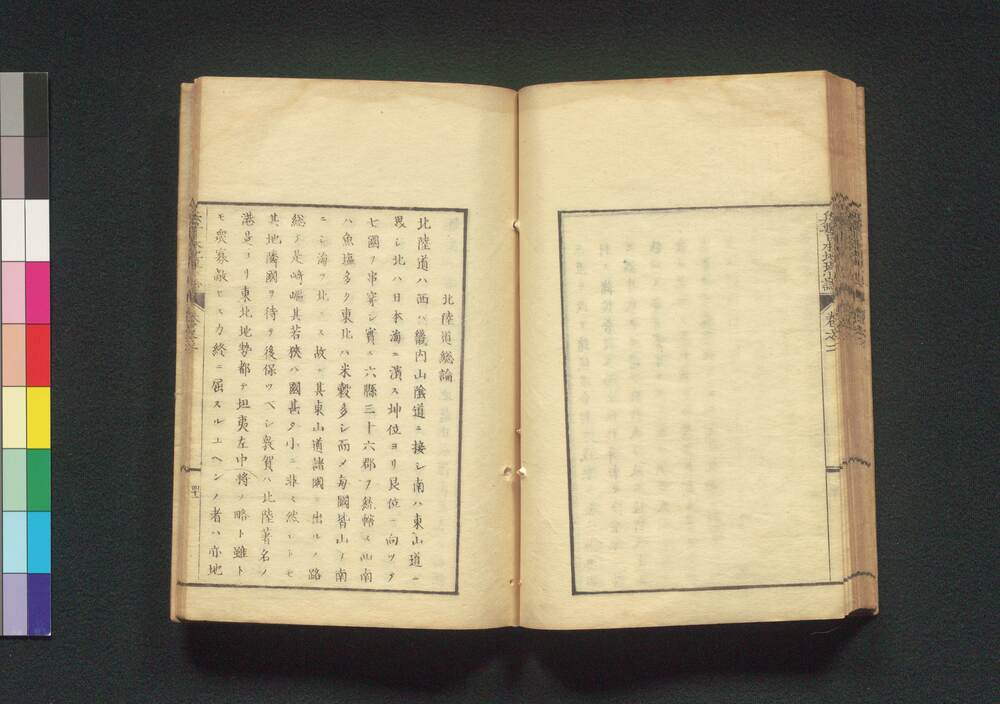 北陸道総論
北陸道ハ西ハ畿内山陰道ニ接シ南ハ東山道ニ
界シ北ハ日本海ニ濱ス坤位ヨリ艮位ニ向ツテ
七國ヲ串穿シ實ニ六縣三十六郡ヲ管轄ス西南
ハ魚塩多ク東北ハ米穀多シ而メ每國皆山ヲ南
ニシ海ヲ北ニス故ニ其東山道諸國ニ出ルノ路
総テ是崎嶇其若狹ハ國甚タ小ニ非ミ然レトモ
其地隣國ヲ待テ後保ツベシ敦賀ハ北陸著名ノ
港是ヨリ東北地勢都テ坦夷左中將ノ略ト雖ト
モ衆寡敵セス力終ニ屈スルユヘンノ者ハ亦地